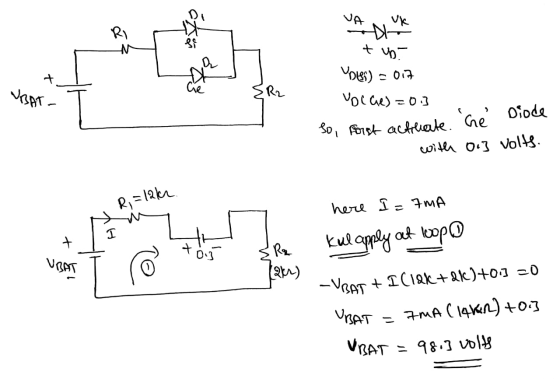 R1
D1
Si
D2
Ge
+
VBAT -
R2
VA VK
+ VD -
VD(Si) = 0.7
VD(Ge) = 0.3
So, First activate 'Ge' Diode
with 0.3 volts.
R1=12kΩ
I
+
VBAT
-
+ 0.3 -
①
R2
(2kΩ)
here I = 7mA
KVL apply at loop ①
-VBAT + I(12k+2k)+0.3 = 0
VBAT = 7mA(14kΩ)+0.3
VBAT = 98.3 volts